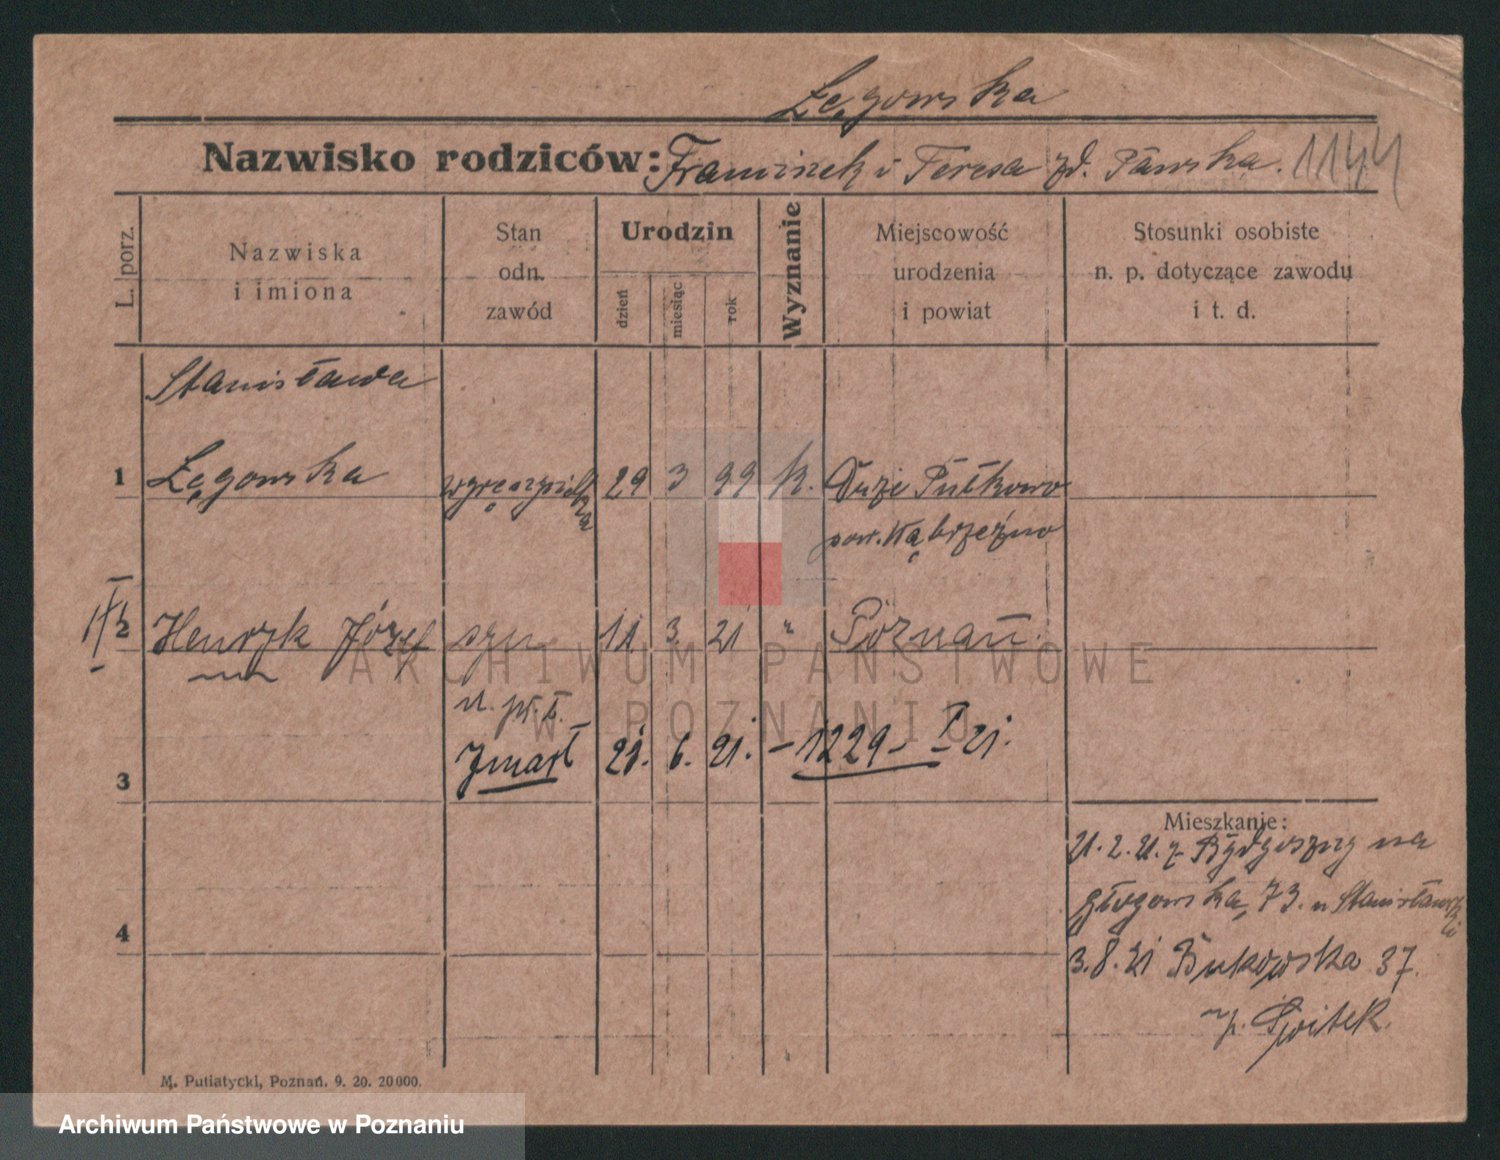 Łęgowska
Nazwisko rodziców: Franciszek i Teresa zd. Pawska. 1144
L. porz.
Nazwiska
i imiona
Stan
odn.
zawód
Urodzin
dzień
miesiąc
rok
Wyznanie
Miejscowość
urodzenia
i powiat
Stosunki osobiste
n. p. dotyczące zawodu
i t. d.
Stanisława
1 Łęgowska 29 3 99 k. Duże Pułkowo
pow. Wąbrzeźno
2 Henryk Józef syn 11 3. 21 " Poznań.
3 Zmarł 21. 6. 21. - 1229 - 21.
Mieszkanie:
21. 2. 21. z Bydgoszczy na
4 głogowska 73. u
3. 8. 21 Bukowska 37.
M. Putiatycki, Poznań. 9. 20. 20000.
ARCHIWUM PAŃSTWOWE
W POZNANIU
Archiwum Państwowe w Poznaniu